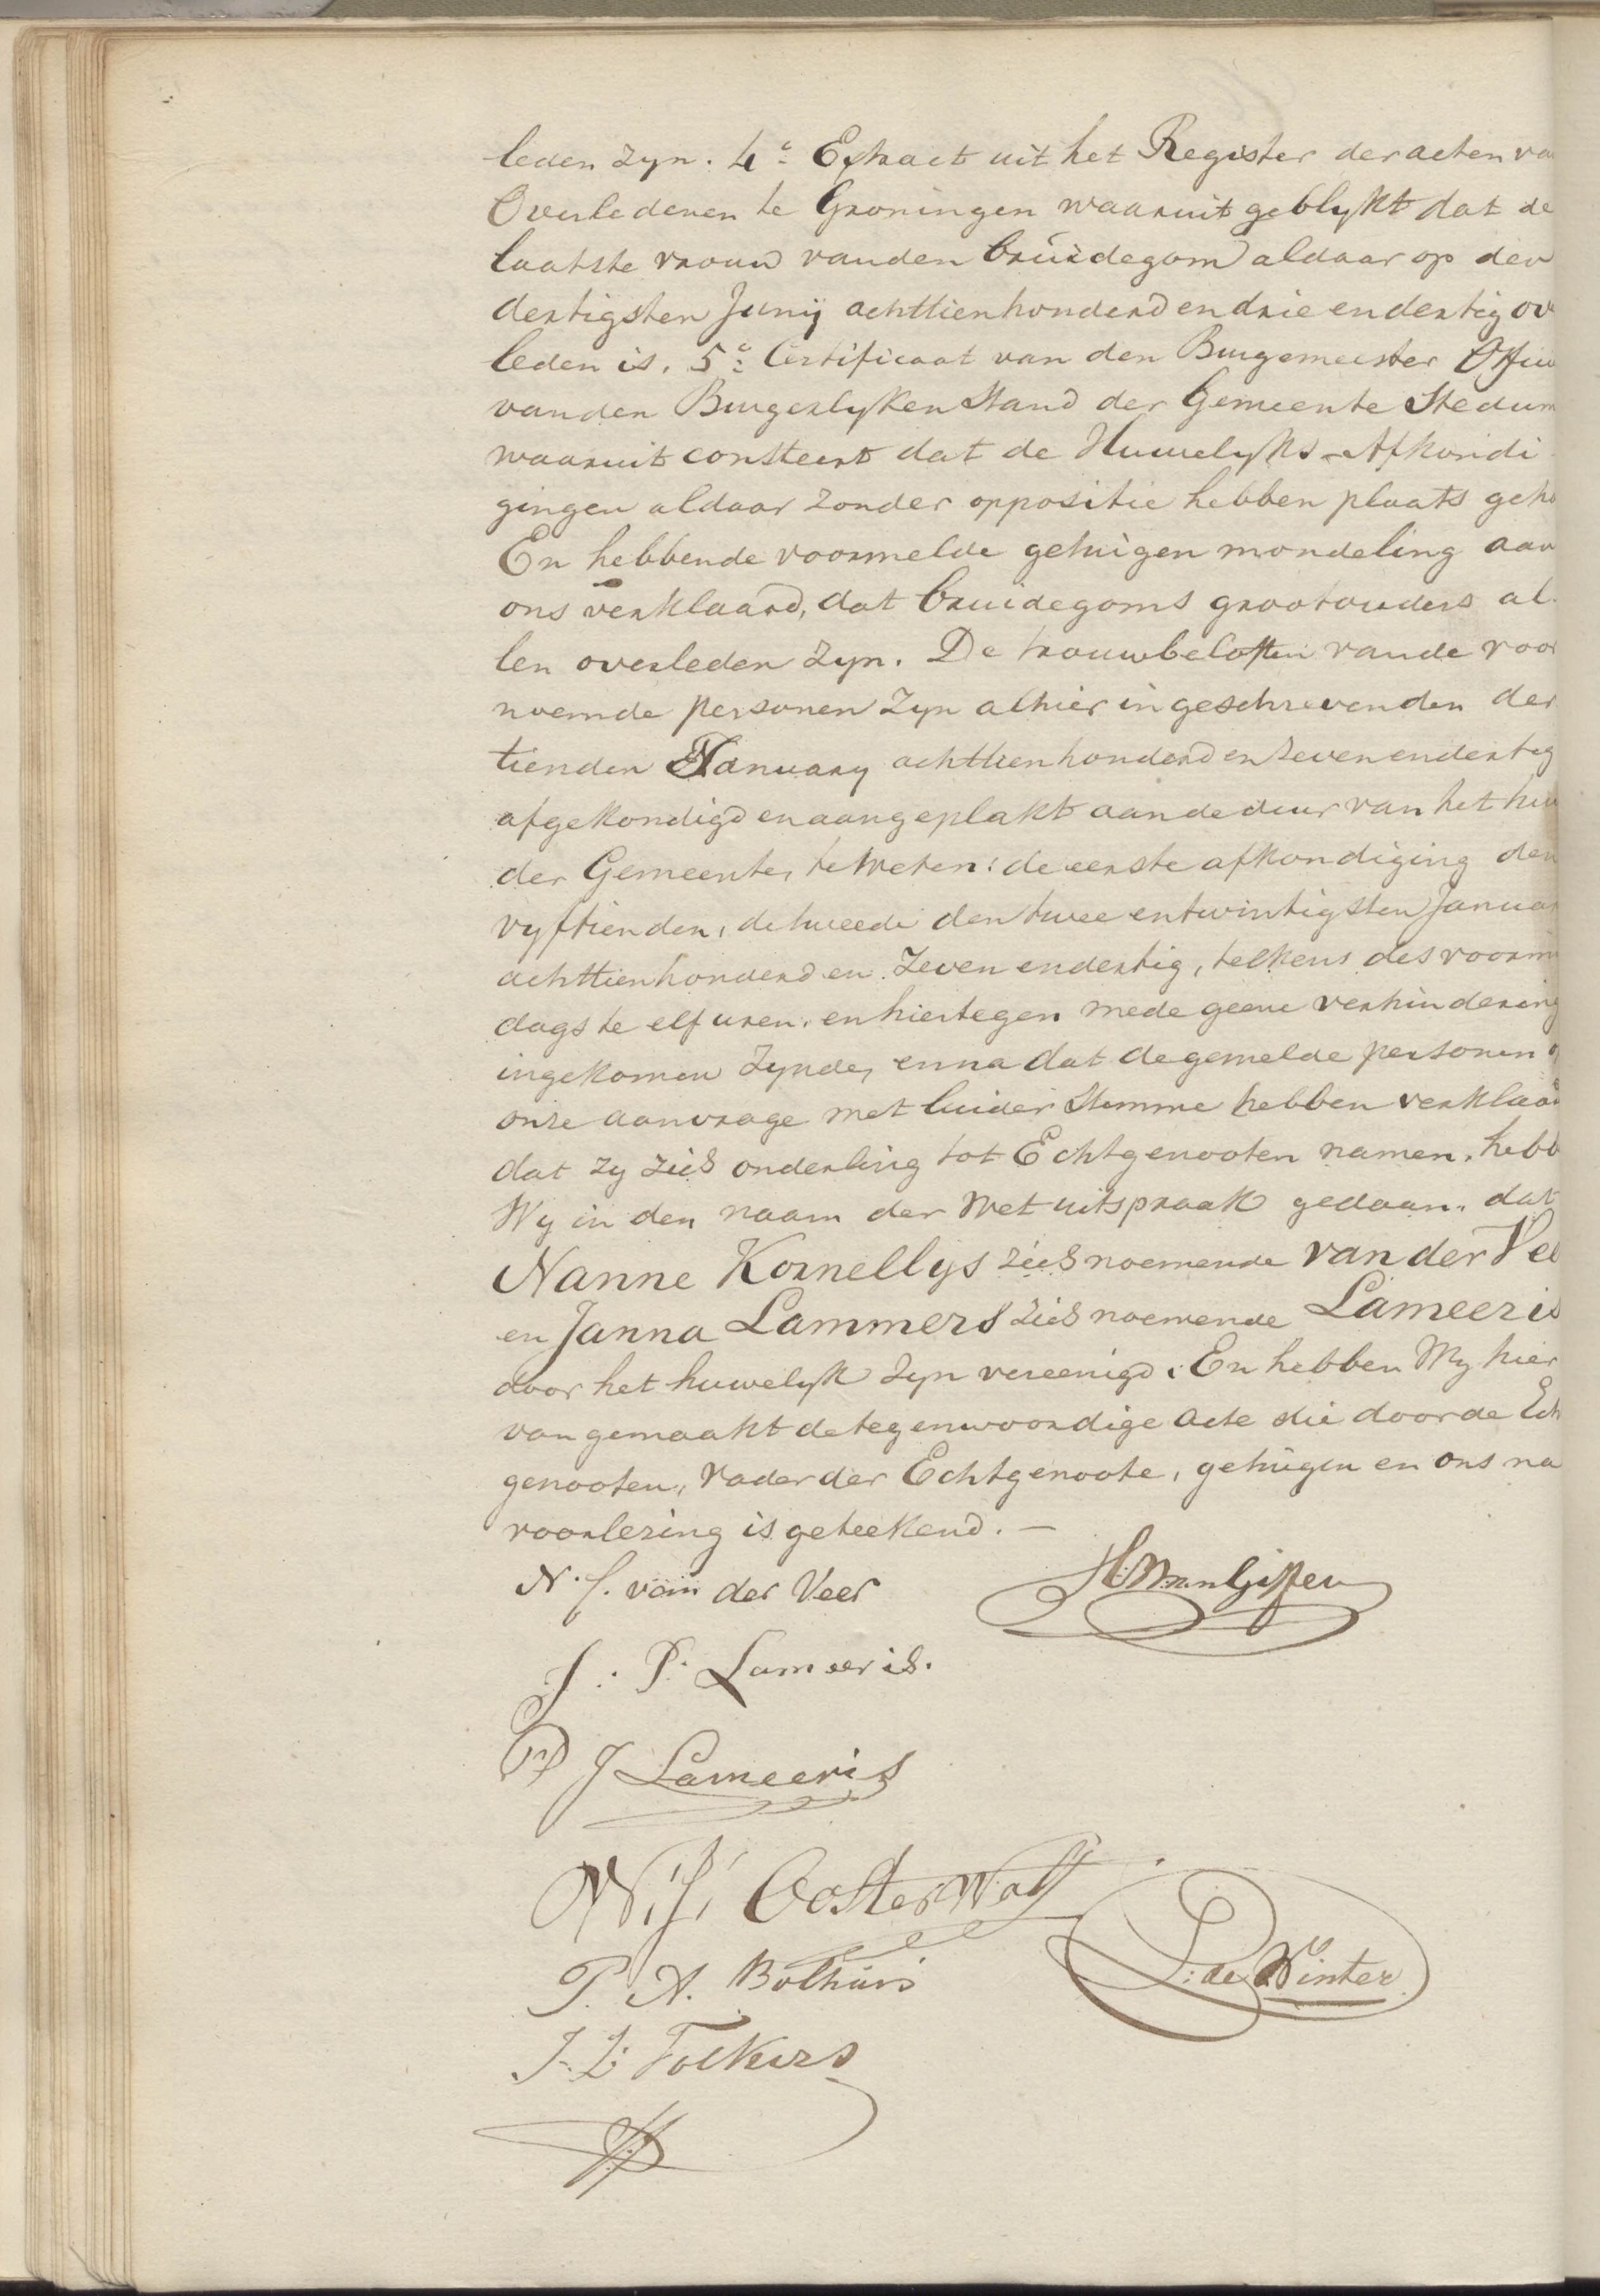 leden zyn. 4º Extract uit het Register der acten va
Overledenen te Groningen waaruit geblykt dat de
laatste vrouw van den bruidegom aldaar op den
dertigsten Junij achttienhonderd en drie en dertig ov
leden is, 5º Certificaat van den Burgemeester Offici
van den Burgerlyken Stand der Gemeente Stedum
waaruit consteert dat de Huwelyks-Afkondi
gingen aldaar zonder oppositie hebben plaats geha
En hebbende voormelde getuigen mondeling aan
ons verklaard, dat bruidegoms grootouders al-
len overleden zyn. De trouwbeloften van de voor
noemde personen zyn alhier ingeschreven den der
tienden January achttienhonderd en zeven en dertig
afgekondigd en aangeplakt aan de deur van het hui
der Gemeente, te weten: de eerste afkondiging den
vyftienden, de tweede den twee en twintigsten Januar
achttienhonderd en zeven en dertig, telkens des voormi
dags te elf uren, en hiertegen mede geene verhindering
ingekomen zynde, en na dat de gemelde personen o
onze aanvrage met luider stemme hebben verklaard
dat zy zich onderling tot Echtgenooten namen, hebb
Wy in den naam der Wet uitspraak gedaan, dat
Nanne Kornellys zich noemende van der Vee
en Janna Lammers zich noemende Lameeris
door het huwelyk zyn vereenigd. En hebben Wy hier
van gemaakt de tegenwoordige Acte die door de Ech
genooten, Vader der Echtgenoote, getuigen en ons na
voorlezing is geteekend. —
N. C. van der Veer
H. W. van Giffen
J. P. Lameeris.
P J Lameeris
N. J. Oosterwolf
L. de Winter
P. A. Bolhuis
J. L. Folkers